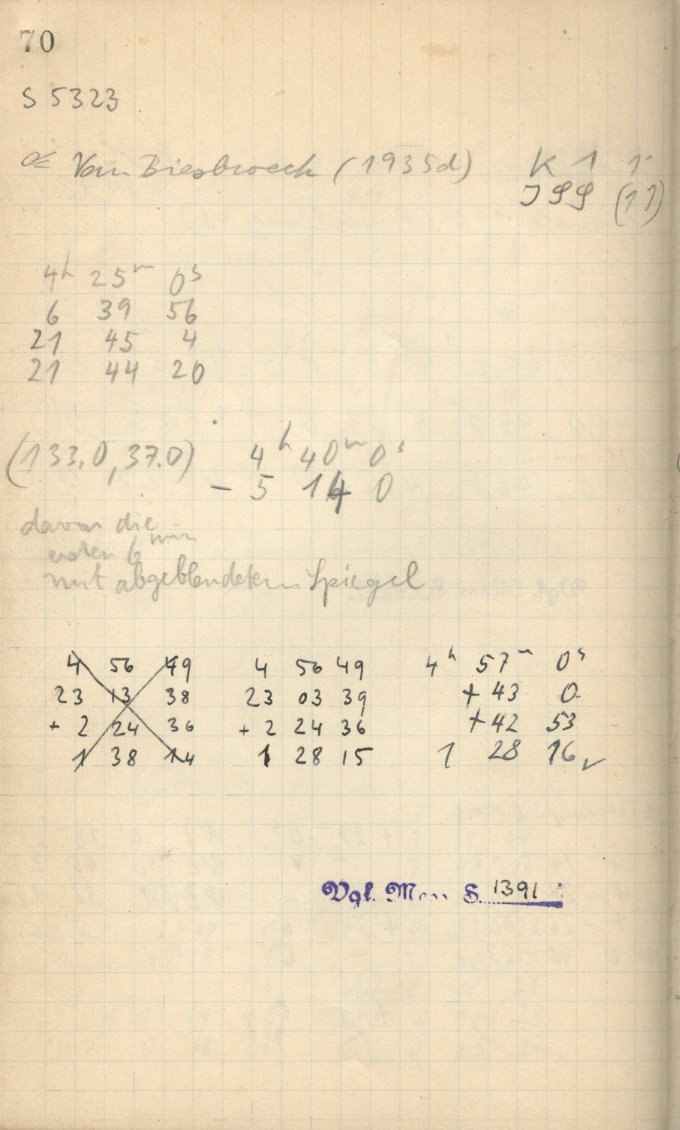 70
S 5323
☄ Van Biesbroeck (1935d) K 1 1
JSS (11)
4ʰ 25ᵐ 0ˢ
6 39 56
21 45 4
21 44 20
(133.0, 37.0) 4ʰ 40ᵐ 0ˢ
− 5 14 0
davon die
ersten 6 min
mit abgeblendetem Spiegel
4 56 49 4 56 49 4ʰ 57ᵐ 0ˢ
23 13 38 23 03 39 + 43 0
+ 2 24 36 + 2 24 36 + 42 53
1 38 14 1 28 15 1 28 16 ✓
Vgl. S. 1391